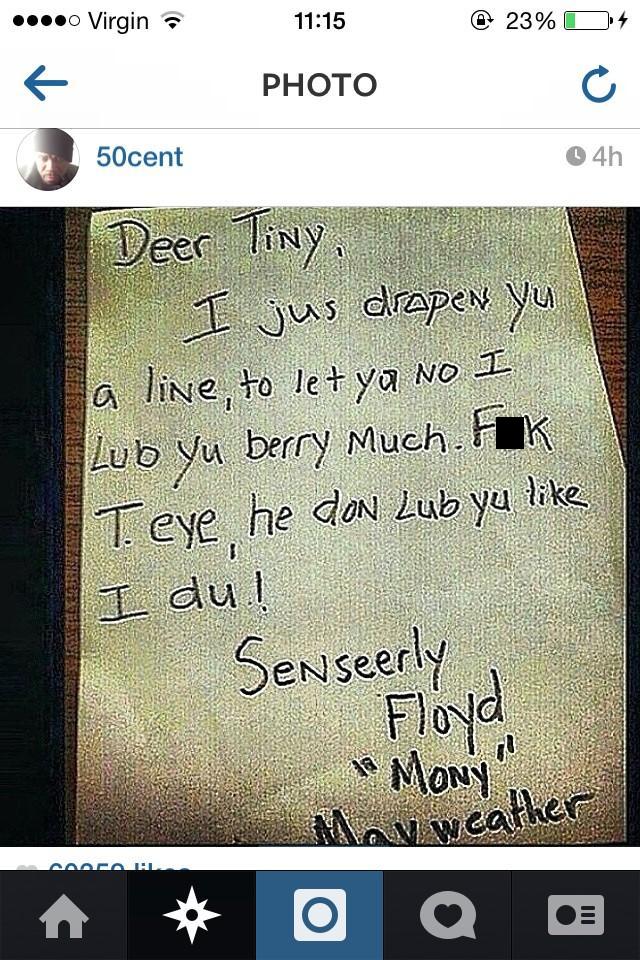 Virgin 11:15 23%
PHOTO
50cent 4h
Deer Tiny,
I jus drapen yu
a line, to let ya no I
Lub yu berry much. F█k
T.eye, he don Lub yu like
I du!
Senseerly
Floyd
"Mony"
Mayweather
60259 likes